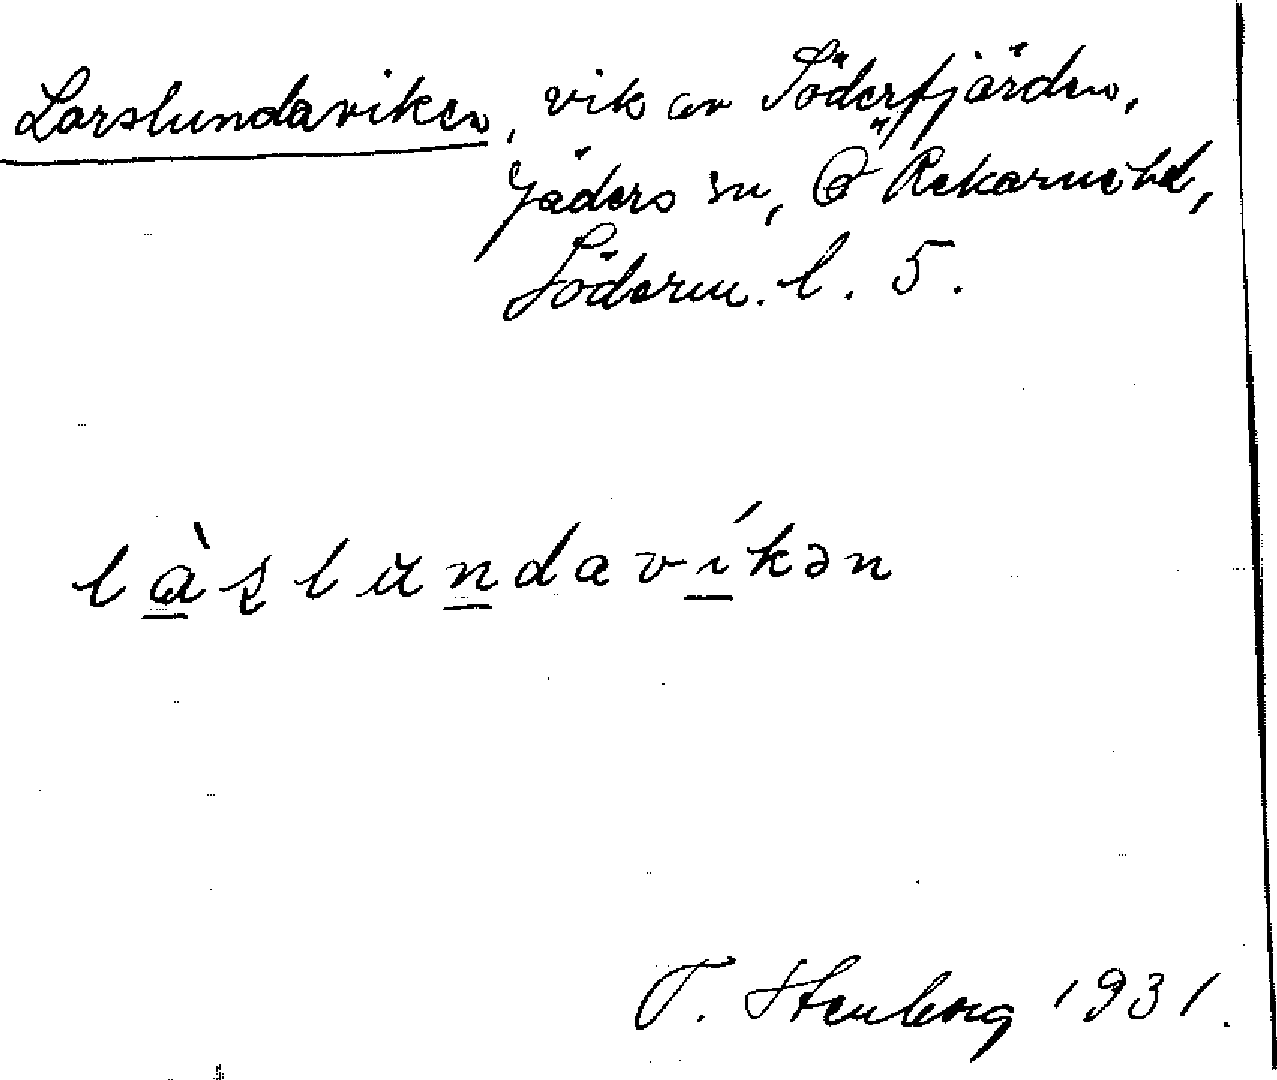 Larslundaviken, vik av Söderfjärden,
Jäders sn, Ö Rekarne hd,
Söderm. l. 5.
làʂlundavíkən
T. Stenberg 1931.